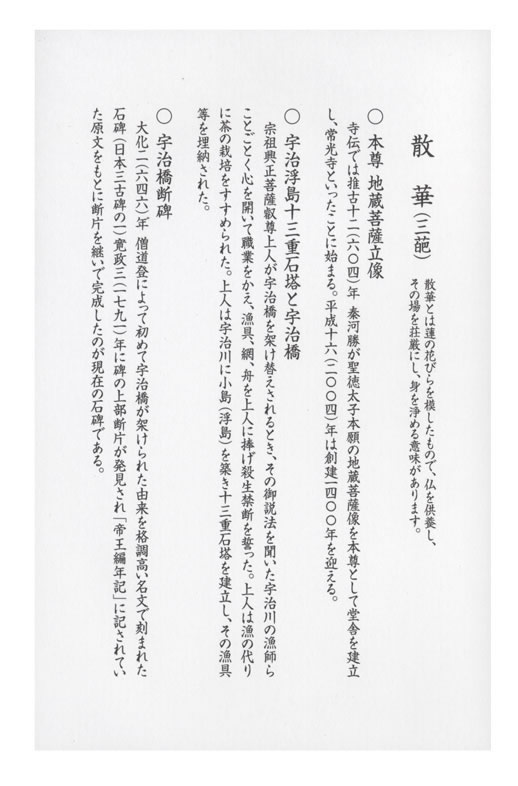 散華(三葩)
散華とは蓮の花びらを模したもので、仏を供養し、
その場を荘厳にし、身を浄める意味があります。
〇 本尊 地蔵菩薩立像
寺伝では推古十二(六〇四)年 秦河勝が聖徳太子本願の地蔵菩薩像を本尊として堂舎を建立
し、常光寺といったことに始まる。平成十六(二〇〇四)年は創建一四〇〇年を迎える。
〇 宇治浮島十三重石塔と宇治橋
宗祖興正菩薩叡尊上人が宇治橋を架け替えされるとき、その御説法を聞いた宇治川の漁師ら
ことごとく心を開いて職業をかえ、漁具、網、舟を上人に捧げ殺生禁断を誓った。上人は漁の代り
に茶の栽培をすすめられた。上人は宇治川に小島(浮島)を築き十三重石塔を建立し、その漁具
等を埋納された。
〇 宇治橋断碑
大化二(六四六)年 僧道登によって初めて宇治橋が架けられた由来を格調高い名文で刻まれた
石碑(日本三古碑の一)寛政三(一七九一)年に碑の上部断片が発見され「帝王編年記」に記されてい
た原文をもとに断片を継いで完成したのが現在の石碑である。